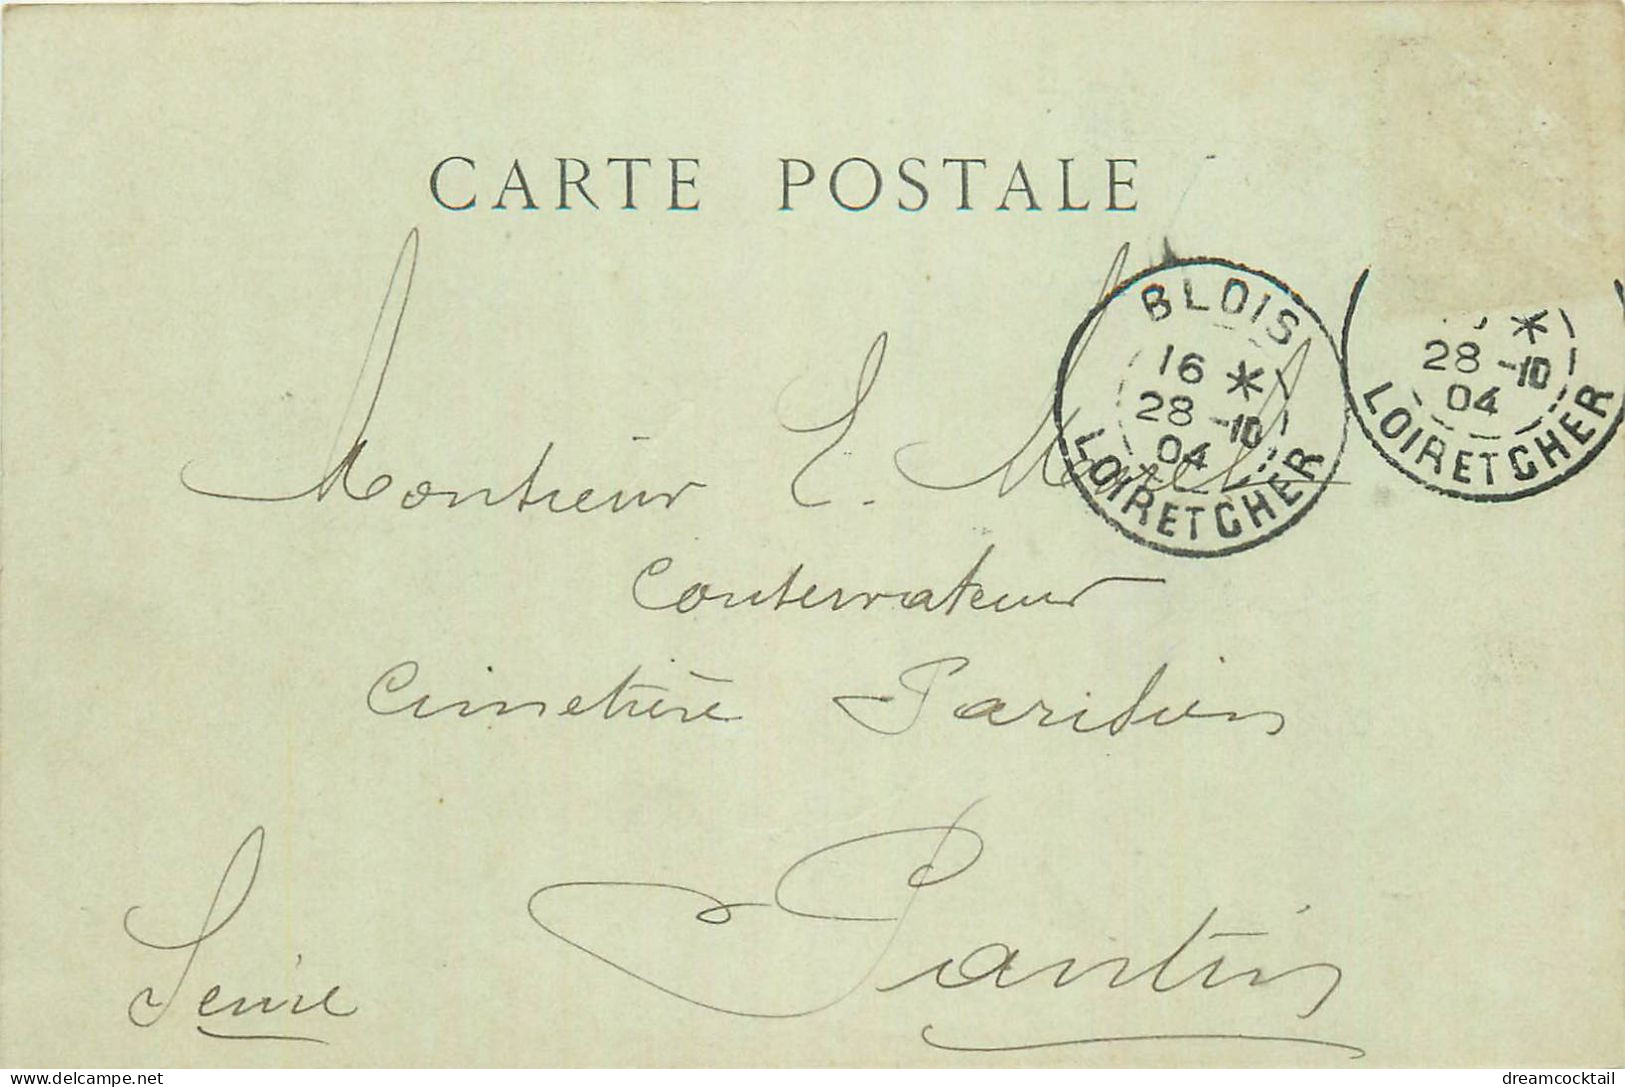 CARTE POSTALE
BLOIS
16 *
28 -10
04
LOIR ET CHER
*
28 -10
04
LOIR ET CHER
Monsieur E.
Conservateur
Cimetière Parisien
Pantin
Seine
delcampe.net
dreamcocktail